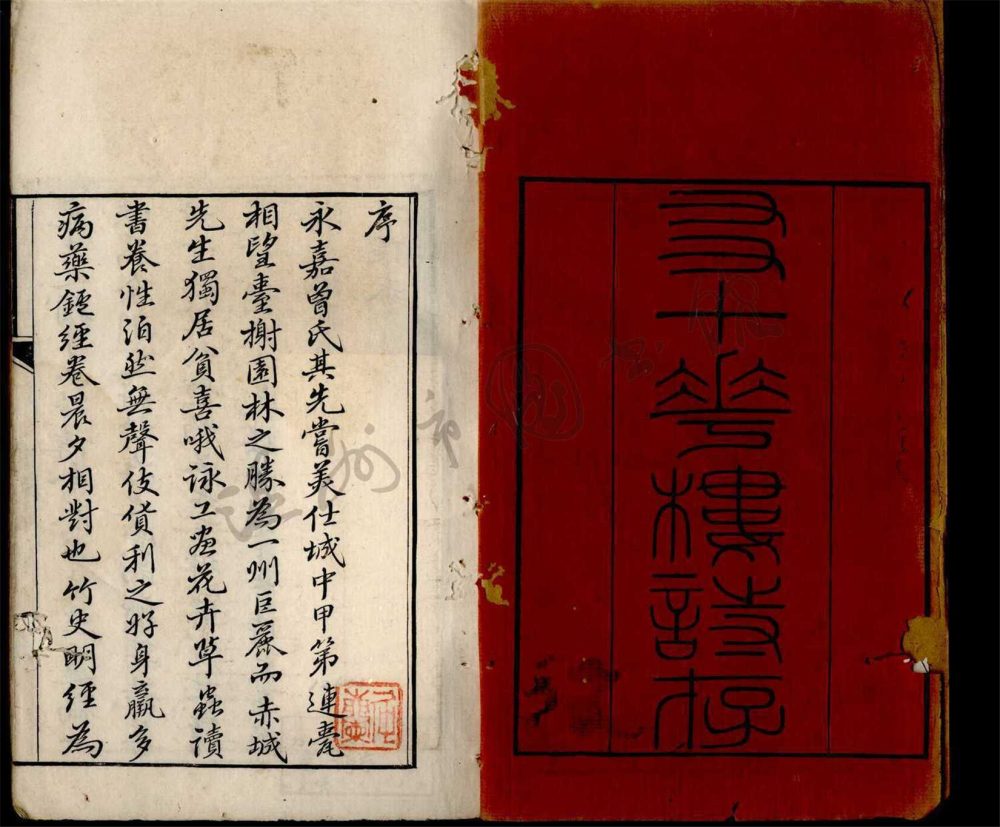 十華樓詩存
序
永嘉曾氏其先嘗美仕城中甲第連甍
相望臺榭園林之勝為一州巨麗而赤城
先生獨居貧喜哦詠工畫花卉草蟲讀
書養性泊然無聲伎貨利之好身羸多
病藥鑪經卷晨夕相對也竹史明經為